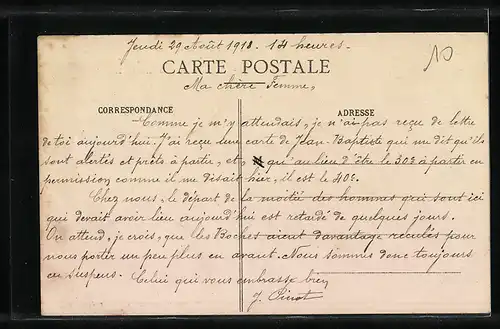 Jeudi 29 Août 1918. 14 heures.
CARTE POSTALE
Ma chère Femme,
CORRESPONDANCE
ADRESSE
Comme je m'y attendais, je n'ai pas reçu de lettre
de toi aujourd'hui. J'ai reçu une carte de Jean-Baptiste qui me dit qu'ils
sont alertés et prêts à partir, et qu'au lieu d'être le 30e à partir en
permission comme il me disait hier, il est le 40e.
Chez nous, le départ de la moitié des hommes qui sont ici
qui devait avoir lieu aujourd'hui est retardé de quelques jours.
On attend, je crois, que les Boches aient davantage reculés pour
nous porter un peu plus en avant. Nous sommes donc toujours
en suspens. Celui qui vous embrasse bien
J.